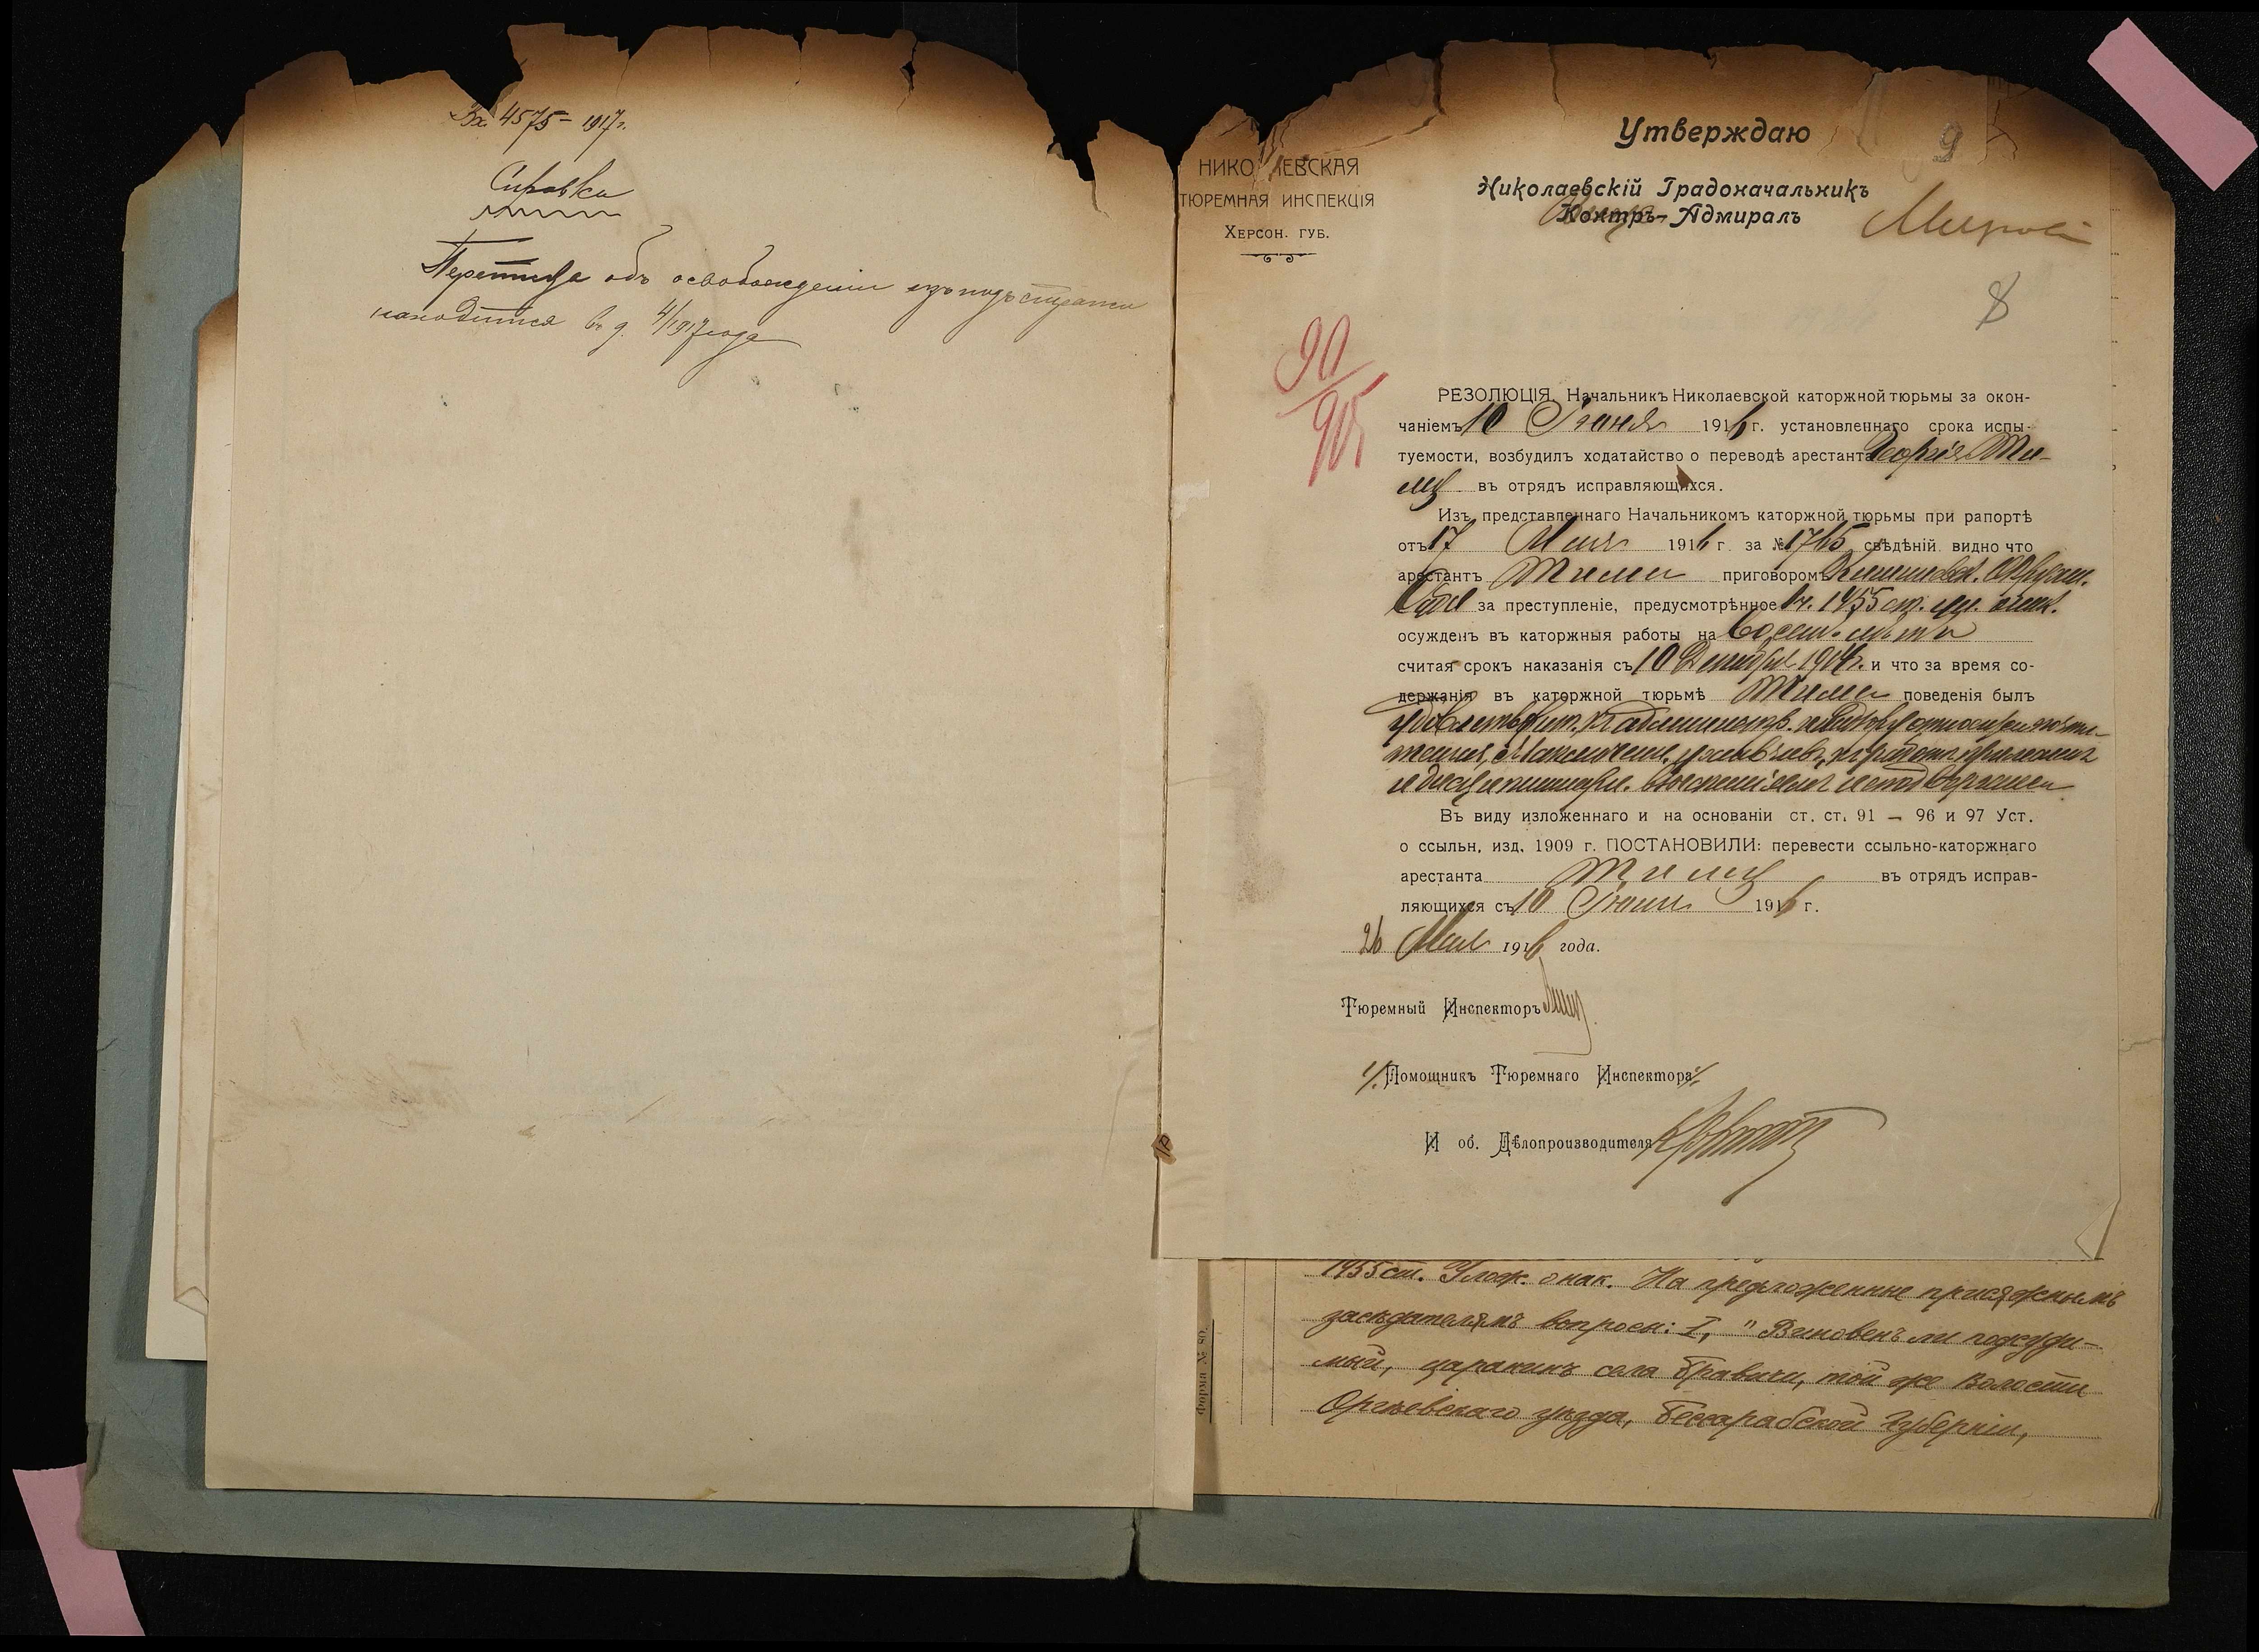 Вх. 4575 – 1917 г.
Справка
Переписка объ освобожденіи изъ подъ стражи
находится въ д. 4/1917 года
9
НИКО ЛЕВСКАЯ
ТЮРЕМНАЯ ИНСПЕКЦІЯ
ХЕРСОН. ГУБ.
Утверждаю
Николаевскій Градоначальникъ
Контръ-Адмиралъ
8
90/915
РЕЗОЛЮЦІЯ. Начальникъ Николаевской каторжной тюрьмы за окон-
чаніемъ 10 Іюня 1916 г. установленнаго срока испы-
туемости, возбудилъ ходатайство о переводѣ арестанта Георгія Ти-
му въ отрядъ исправляющихся.
Изъ представленнаго Начальникомъ каторжной тюрьмы при рапортѣ
отъ 17 Мая 1916 г. за № 1765 свѣдѣній видно что
арестантъ приговоромъ Кишиневск. Окружн.
Суда за преступленіе, предусмотрѣнное 1 ч. 1455 ст. ул. о нак.
осужденъ въ каторжныя работы на восемь лѣтъ
считая срокъ наказанія съ 10 Декабря 1914 г. и что за время со-
держанія въ каторжной тюрьмѣ поведенія былъ
удовлетворит. къ администр. и надзору относился почти-
тельно, къ работѣ прилеженъ
и дисциплинарн. взысканіямъ не подвергался
Въ виду изложеннаго и на основаніи ст. ст. 91 – 96 и 97 Уст.
о ссыльн. изд. 1909 г. ПОСТАНОВИЛИ: перевести ссыльно-каторжнаго
арестанта въ отрядъ исправ-
ляющихся съ 10 Іюня 1916 г.
26 Мая 1916 года.
Тюремный Инспекторъ
Помощникъ Тюремнаго Инспектора
И об. Дѣлопроизводителя
1455 ст. Улож. о нак. На предложенные присяжнымъ
засѣдателямъ вопросы: I, "Виновенъ ли подсуди-
мый, царанинъ села Бравичи, той же волости
Оргѣевскаго уѣзда, Бессарабской губерніи,
Форма № 80.